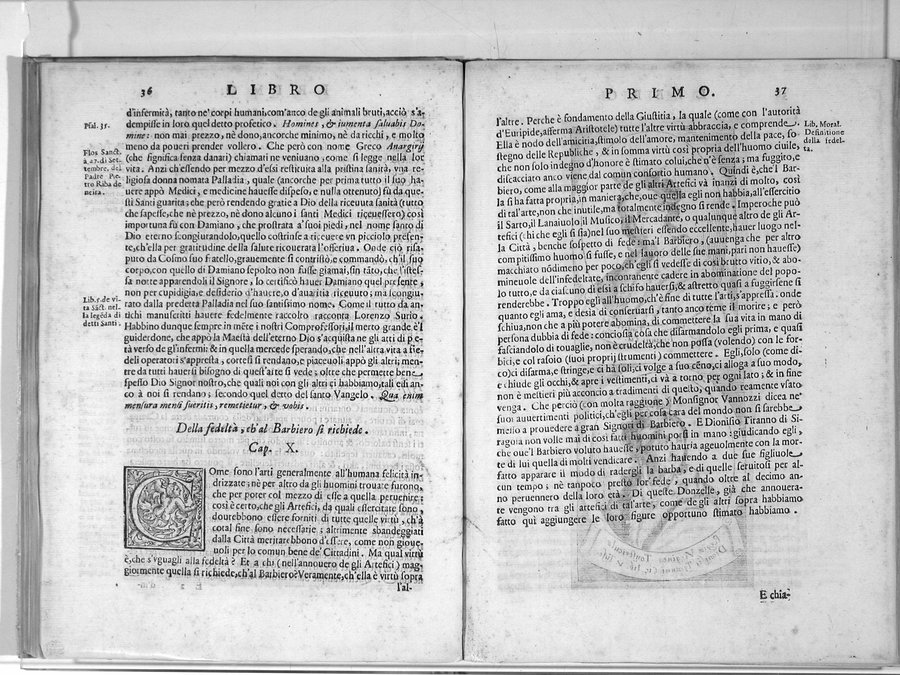 36 LIBRO
d'infermità, tanto ne' corpi humani, com'anco de gli animali bruti, acciò s'a-
dempisse in loro quel detto profetico. Homines, & iumenta saluabis Do-
mine: non mai prezzo, nè dono, ancorche minimo, nè da ricchi, e molto
meno da poueri prender vollero. Che però con nome Greco Anargirij
(che significa senza danari) chiamati ne veniuano, come si legge nella lor
vita. Anzi ch'essendo per mezzo d'essi restituita alla pristina sanità, vna re-
ligiosa donna nomata Palladia, quale (ancorche per prima tutto il suo ha-
uere appò Medici, e medicine hauesse dispeso, e nulla ottenuto) fù da que-
sti Santi guarita; che però rendendo gratie a Dio della riceuuta sanità (tutto
che sapesse, che nè prezzo, nè dono alcuno i santi Medici riceuessero) così
importuna fù con Damiano, che prostrata a' suoi piedi, nel nome santo di
Dio eterno scongiurandolo, quello costrinse a riceuere vn picciolo presen-
te, ch'ella per gratitudine della salute ricouerata l'offeriua. Onde ciò risa-
puto da Cosmo suo fratello, grauemente si contristò, e commandò, ch'il suo
corpo, con quello di Damiano sepolto non fusse giamai, sin tãto, che l'istes-
sa notte apparendoli il Signore, lo certificò hauer Damiano quel presente,
non per cupidigia, e desiderio d'hauere, o d'auaritia riceuuto; ma scongiu-
rato dalla predetta Palladia nel suo santissimo nome. Come il tutto da an-
tichi manuscritti hauere fedelmente raccolto racconta Lorenzo Surio.
Habbino dunque sempre in mẽte i nostri Comprofessori, il merto grande è'l
guiderdone, che appò la Maestà dell'eterno Dio s'acquista ne gli atti di pe-
tà verso de gl'infermi: & in quella mercede sperando, che nell'altra vita a fie-
deli operatori s'appresta, cortesi si rendano, e piaceuoli appò gli altri; men-
tre da tutti hauersi bisogno di quest'arte si vede; oltre che permette bene
spesso Dio Signor nostro, che quali noi con gli altri ci habbiamo, tali essi an-
co à noi si rendano; secondo quel detto del santo Vangelo. Qua enim
mensura mensi fueritis, remetietur, & vobis.
Psal. 35.
Flos Sanct.
à 27. di Set-
tembre, del
Padre Pie-
tro Riba de
neira.
Lib. 5. de vi-
ta Sãct. nel-
la legẽda di
detti Santi.
Della fedeltà, ch'al Barbiero si richiede.
Cap. X.
Come sono l'arti generalmente all'humana felicità in-
drizzate; nè per altro da gli huomini trouate furono,
che per poter col mezzo di esse a quella peruenire:
così è certo, che gli Artefici, da quali essercitate sono,
dourebbono essere forniti di tutte quelle virtù, ch'à
cotal fine sono necessarie: altrimente sbandeggiati
dalla Città meritarebbono d'essere, come non gioue-
uoli per lo comun bene de' Cittadini. Ma qual virtù
è, che s'vguagli alla fedeltà? Et a chi (nell'annouero de gli Artefici) mag-
giormente quella si richiede, ch'al Barbiero? Veramente, ch'ella è virtù sopra
l'al-
PRIMO. 37
l'altre. Perche è fondamento della Giustitia, la quale (come con l'autorità
d'Euripide, afferma Aristotele) tutte l'altre virtù abbraccia, e comprende.
Ella è nodo dell'amicitia, stimolo dell'amore, mantenimento della pace, so-
stegno delle Republiche, & in somma virtù così propria dell'huomo ciuile,
che non solo indegno d'honore è stimato colui, che n'è senza; ma fuggito, e
discacciato anco viene dal comun consortio humano. Quindi è, che'l Bar-
biero, come alla maggior parte de gli altri Artefici và inanzi di molto, così
la si hà fatta propria, in maniera, che, oue quella egli non habbia, all'essercitio
di tal'arte, non che inutile, ma totalmente indegno si rende. Imperoche può
il Sarto, il Lanaiuolo, il Musico, il Mercadante, o qualunque altro de gli Ar-
tefici (chi che egli si sia) nel suo mestieri essendo eccellente, hauer luogo nel-
la Città, benche sospetto di fede: ma'l Barbiero, (auuenga che per altro
compitissimo huomo si fusse, e nel lauoro delle sue mani, pari non hauesse)
macchiato nõdimeno per poco, ch'egli si vedesse di così brutto vitio, & abo-
mineuole dell'infedeltate, incontanente cadere in abominatione del popo-
lo tutto, e da ciascuno di essi a schifo hauersi; & astretto quasi a fuggirsene si
renderebbe. Troppo egli all'huomo, ch'è fine di tutte l'arti, s'appressa. onde
quanto egli ama, e desia di conseruarsi, tanto anco teme il morire; e però
schiua, non che a più potere abomina, di commettere la sua vita in mano di
persona dubbia di fede: conciosia cosa che disarmandolo egli prima, e quasi
fasciandolo di touaglie, non è crudeltà, che non possa (volendo) con le for-
bici, e col rasoio (suoi proprij strumenti) commettere. Egli, solo (come di-
co) ci disarma, e stringe, e ci hà soli; ci volge a suo cẽno, ci alloga a suo modo,
e chiude gli occhi, & apre i vestimenti, ci và a torno per ogni lato; & in fine
non è mestieri più acconcio a tradimenti di questo, quando reamente vsato
venga. Che perciò (con molta raggione) Monsignor Vannozzi dicea ne'
suoi auuertimenti politici, ch'egli per cosa cara del mondo non si sarebbe
messo a prouedere a gran Signori di Barbiero. E Dionisio Tiranno di Si-
ragoia non volle mai di cosi fatti huomini porsi in mano: giudicando egli,
che oue'l Barbiero voluto hauesse, potuto hauria ageuolmente con la mor-
te di lui quella di molti vendicare. Anzi hauendo a due sue figliuole
fatto apparare il modo di radergli la barba, e di quelle seruitosi per al-
cun tempo; nè tanpoco presto lor fede, quando oltre al decimo an-
no peruennero della loro età. Di queste Donzelle, già che annouera-
te vengono tra gli artefici di tal'arte, come de gli altri sopra habbiamo
fatto quì aggiungere le loro figure opportuno stimato habbiamo.
Lib. Moral.
Definitione
della fedel-
tà.
E chia-